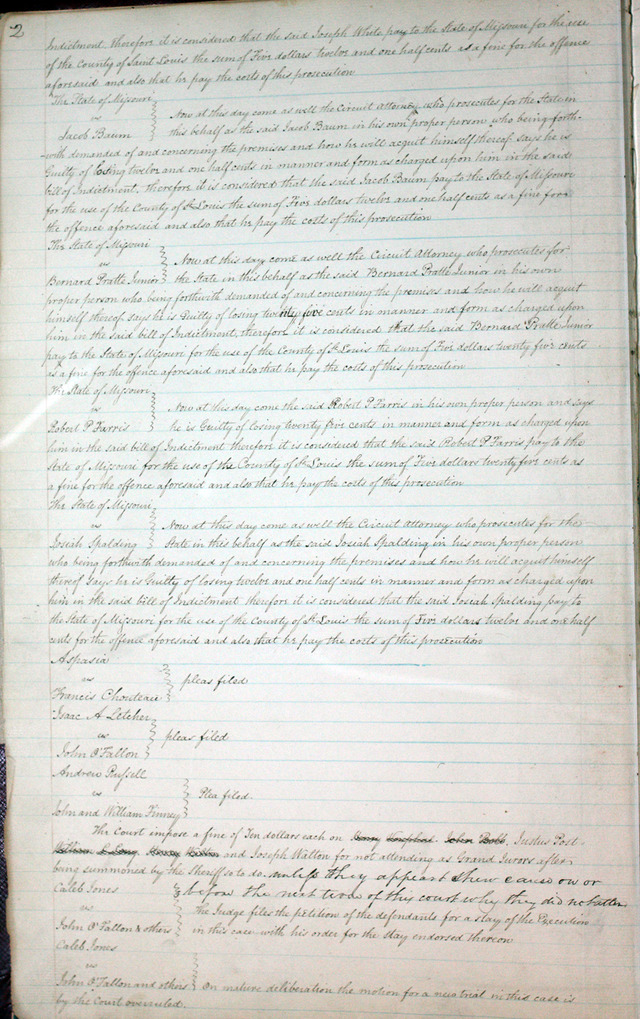 2
Indictment therefore it is considered that the said Joseph White pay to the State of Missouri for the use
of the County of Saint Louis the sum of Five dollars twelve and one half cents as a fine for the offence
aforesaid and also that he pay the costs of this prosecution
The State of Missouri
vs
Jacob Baum
Now at this day come as well the Circuit Attorney who prosecutes for the State in
this behalf as the said Jacob Baum in his own proper person who being forth-
-with demanded of and concerning the premises and how he will acquit himself thereof says he is
Guilty of losing twelve and one half cents in manner and form as charged upon him in the said
bill of Indictment, therefore it is considered that the said Jacob Baum pay to the State of Missouri
for the use of the County of St Louis the sum of Five dollars twelve and one half cents as a fine for
the offence aforesaid and also that he pay the costs of this prosecution
The State of Missouri
vs
Bernard Pratte Junior
Now at this day come as well the Circuit Attorney who prosecutes for
the State in this behalf as the said Bernard Pratte Junior in his own
proper person who being forthwith demanded of and concerning the premises and how he will acquit
himself thereof says he is Guilty of losing twenty five cents in manner and form as charged upon
him in the said bill of Indictment, therefore it is considered that the said Bernard Pratte Junior
pay to the State of Missouri for the use of the County of St Louis the sum of Five dollars twenty five cents
as a fine for the offence aforesaid and also that he pay the costs of this prosecution
The State of Missouri
vs
Robert P Farris
Now at this day come the said Robert P Farris in his own proper person and says
he is Guilty of losing twenty five cents in manner and form as charged upon
him in the said bill of Indictment therefore it is considered that the said Robert P Farris pay to the
State of Missouri for the use of the County of St Louis the sum of Five dollars twenty five cents as
a fine for the offence aforesaid and also that he pay the costs of this prosecution
The State of Missouri
vs
Josiah Spalding
Now at this day come as well the Circuit Attorney who prosecutes for the
State in this behalf as the said Josiah Spalding in his own proper person
who being forthwith demanded of and concerning the premises and how he will acquit himself
thereof says he is Guilty of losing twelve and one half cents in manner and form as charged upon
him in the said bill of Indictment therefore it is considered that the said Josiah Spalding pay to
the State of Missouri for the use of the County of St Louis the sum of Five dollars twelve and one half
cents for the offence aforesaid and also that he pay the costs of this prosecution
Aspasia
vs
Francis Chouteau
pleas filed
Isaac A Letcher
vs
John O'Fallon
pleas filed
Andrew Russell
vs
John and William Finney
Plea filed.
The Court impose a fine of Ten dollars each on Henry John Justus Post
William L Long Henry Walton and Joseph Walton for not attending as Grand Jurors after
being summoned by the Sheriff so to do. unless they appear & shew cause on or
before the next term of this court why they did not attend
Caleb Jones
vs
John O'Fallon & others
The Judge files the petition of the defendants for a stay of the Execution
in this case with his order for the stay endorsed thereon
Caleb Jones
vs
John O'Fallon and others
On mature deliberation the motion for a new trial in this case is
by the Court overruled.